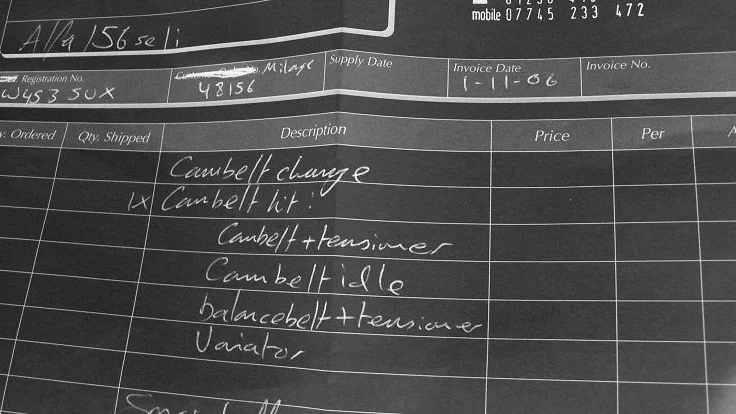 mobile 07745 233 472
Alfa 156 seli
Registration No. Milage Supply Date Invoice Date Invoice No.
W453 SUX 48156 1-11-06
Ordered Qty. Shipped Description Price Per
Cambelt change
1x Cambelt kit:
Cambelt + tensioner
Cambelt idle
balancebelt + tensioner
Variator